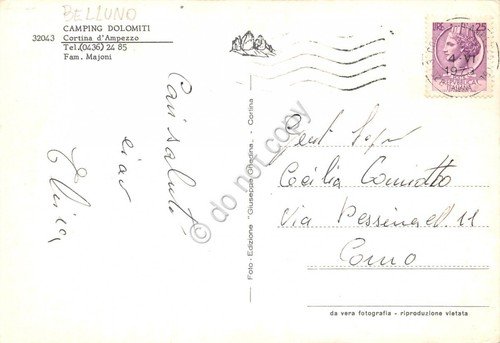 BELLUNO
CAMPING DOLOMITI
32043 Cortina d'Ampezzo
Tel.(0436) 24 85
Fam. Majoni
LIRE 25
4-VI
ITALIANA
Cari saluti
ciao
Foto-Edizione "Giuseppe Ghedina" - Cortina
do not copy
Cecilia
Via Pessina n. 11
Como
da vera fotografia - riproduzione vietata